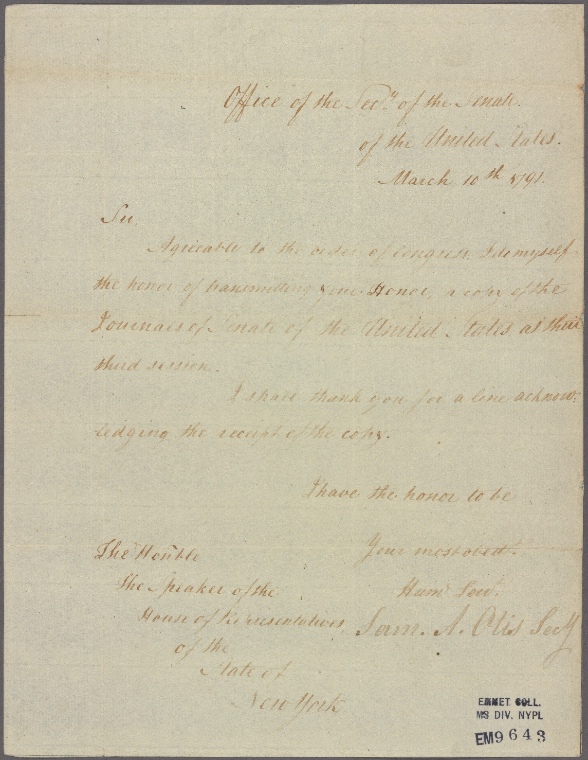 Office of the Secy. of the Senate.
of the United States.
March 10th 1791.
Sir
Agreeable to the order of Congress, I do myself
the honor of transmitting your Honor, a copy of the
Journals of Senate of the United States at their
third session.
I shall thank you for a line acknow-
ledging the receipt of the copy.
I have the honor to be
Your most obedt.
Hum Servt.
Sam. A. Otis Secy
The Honble
The Speaker of the
House of Representatives
of the
State of
New York
EMMET COLL.
MS DIV. NYPL
EM9643